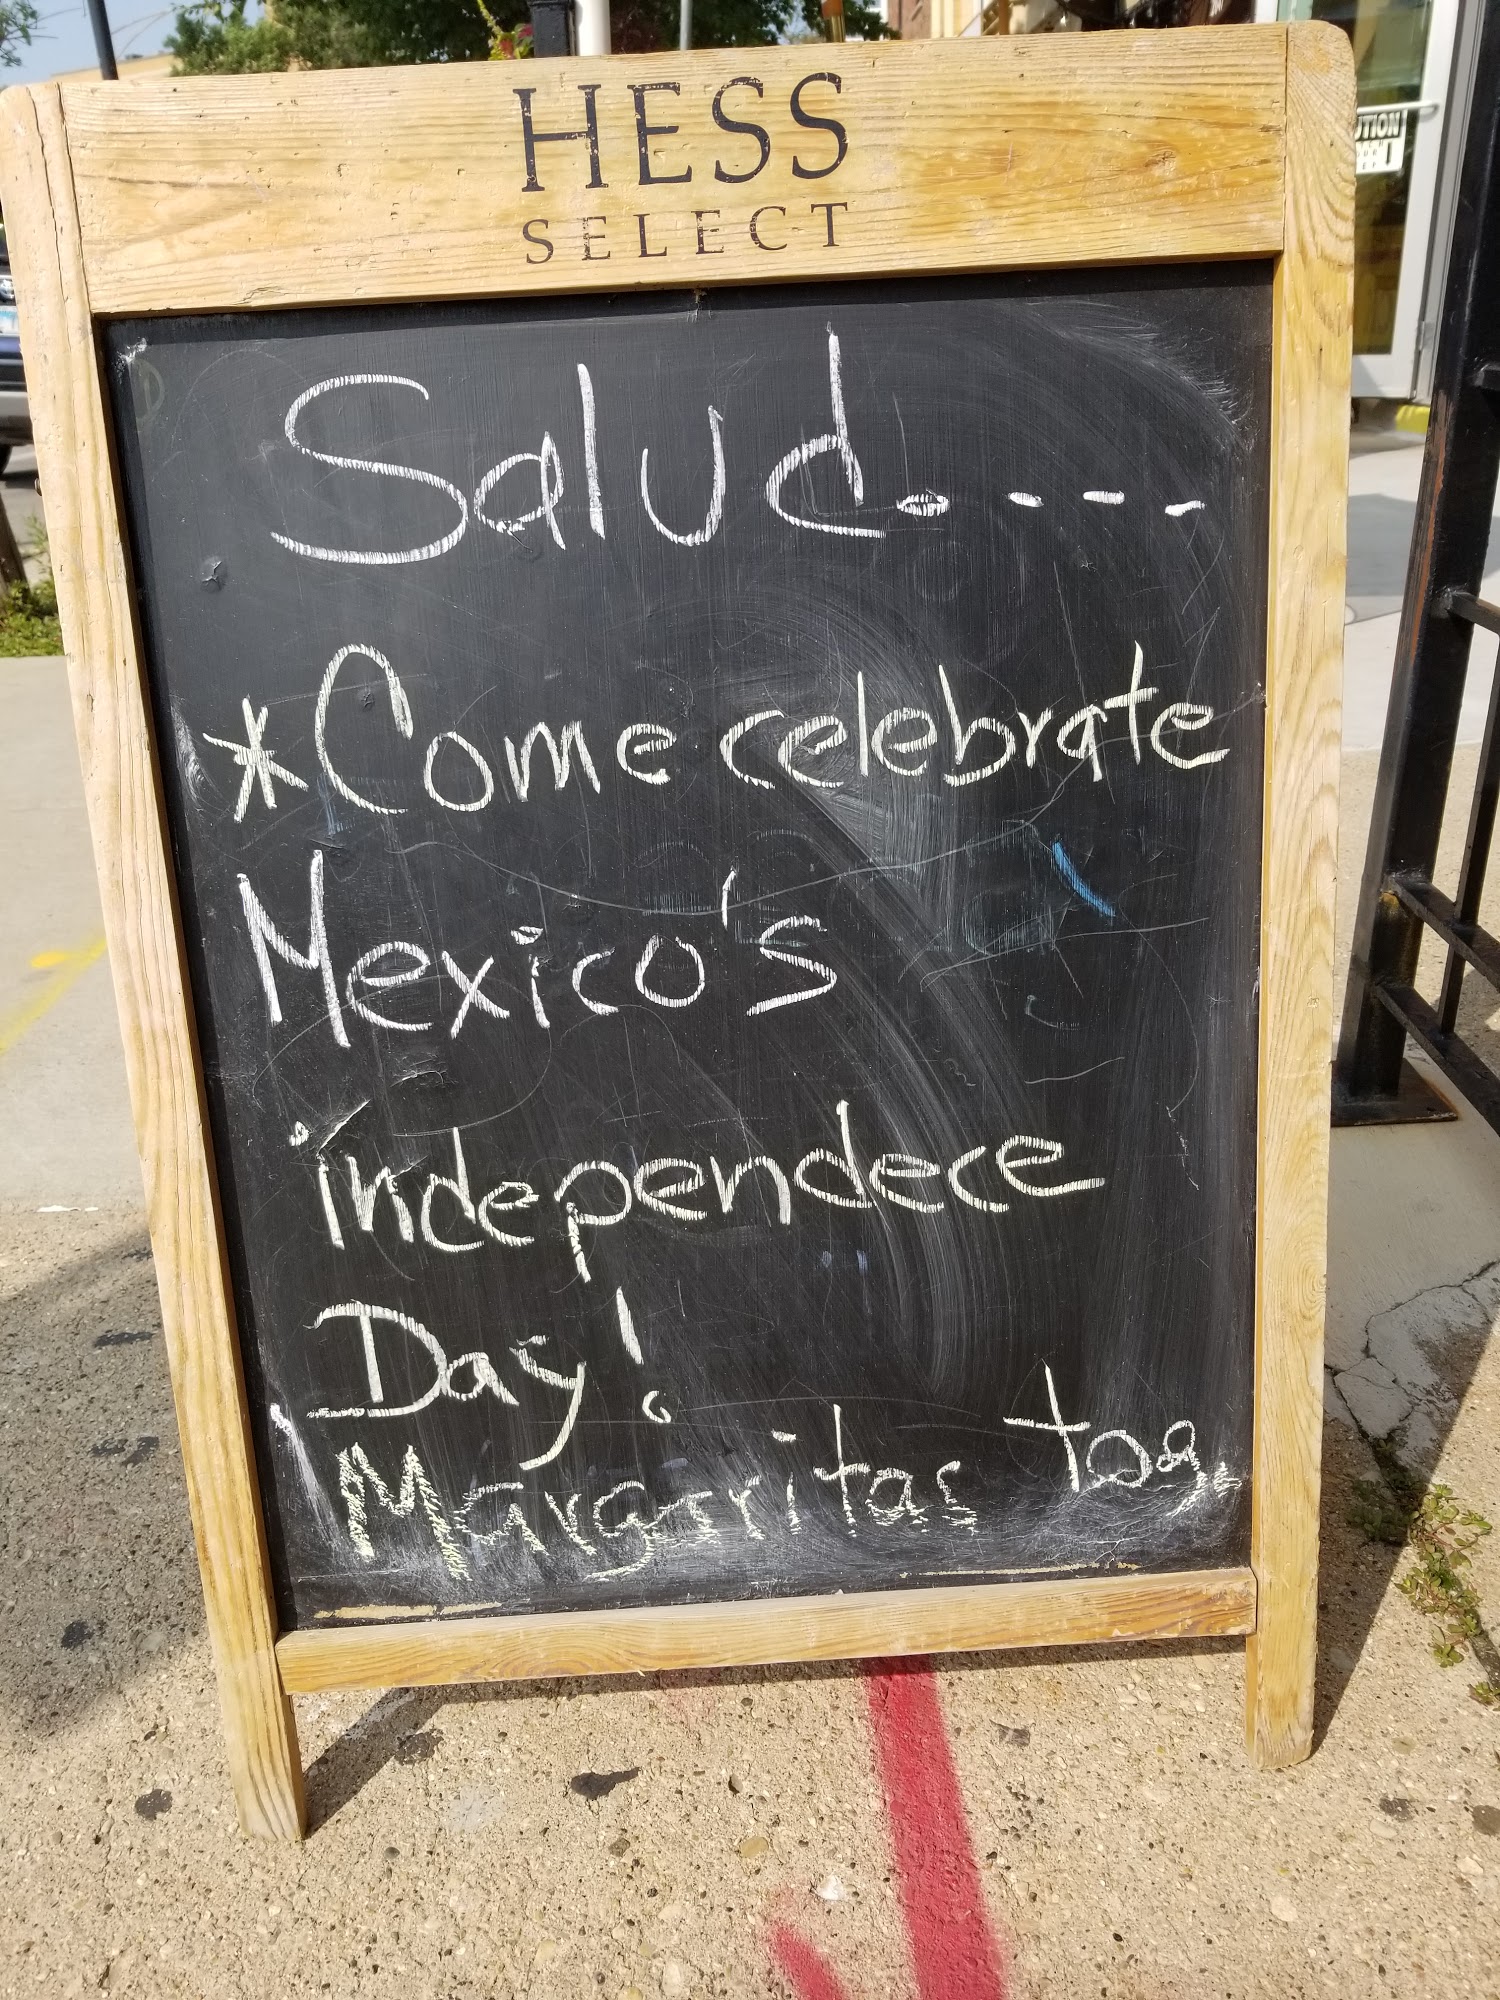 HESS
SELECT
Salud....
*Come celebrate
Mexico's
independece
Day!
Margaritas too